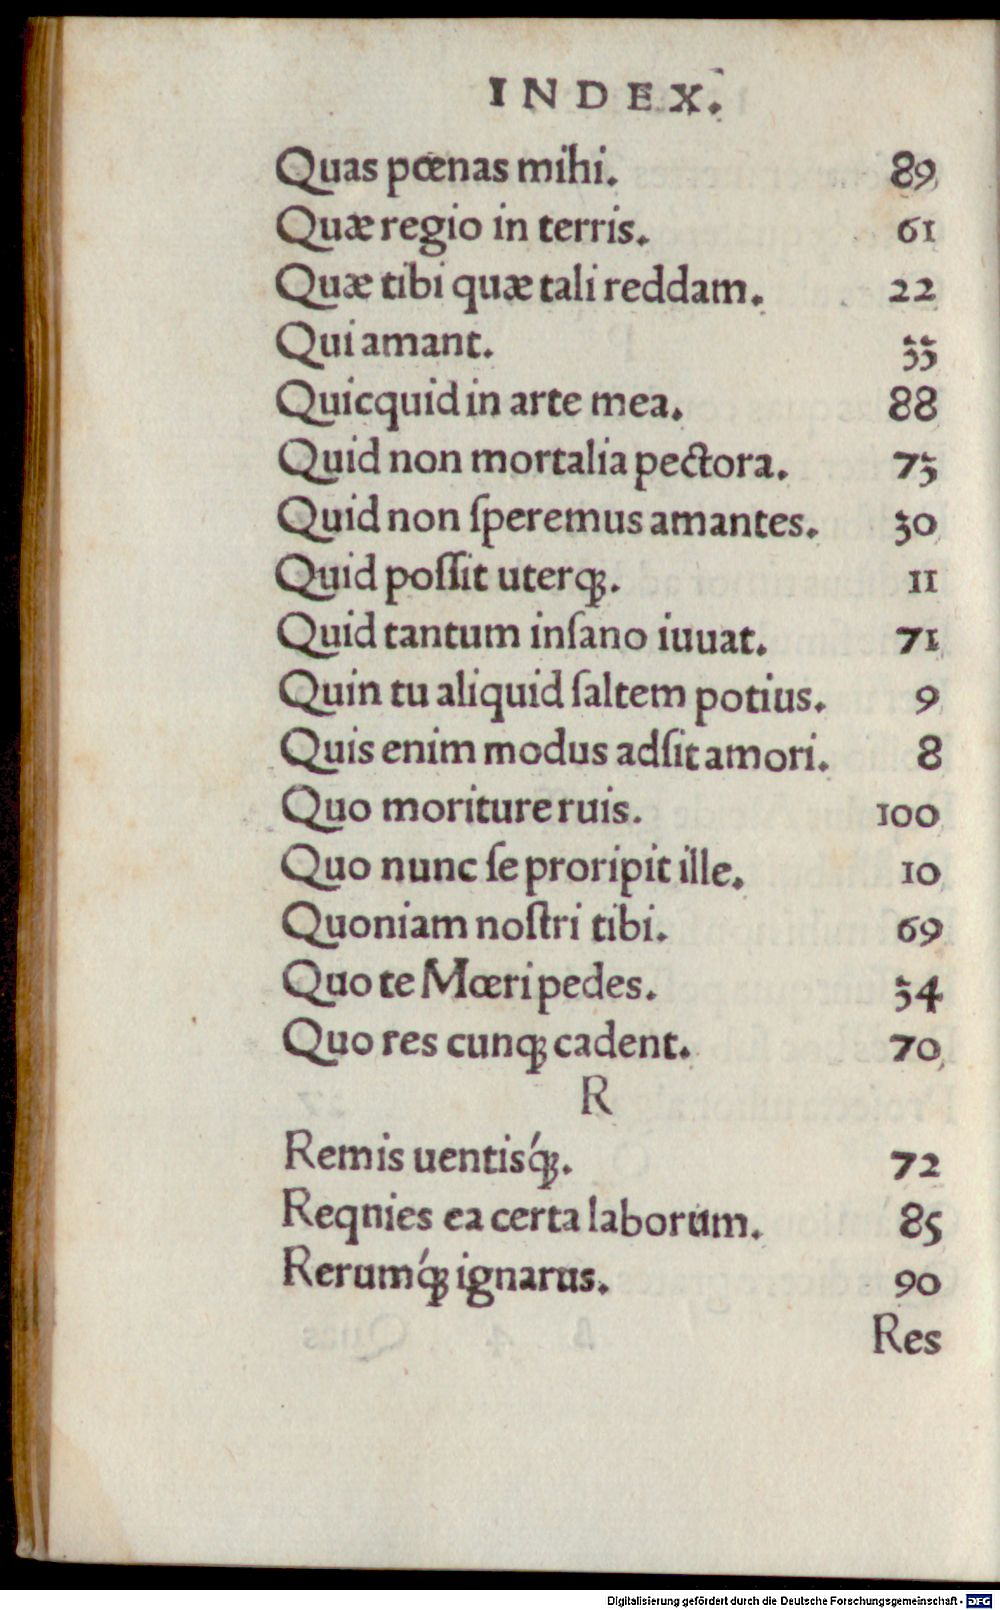 INDEX.
Quas pœnas mihi. 89
Quæ regio in terris. 61
Quæ tibi quæ tali reddam. 22
Qui amant. 33
Quicquid in arte mea. 88
Quid non mortalia pectora. 73
Quid non ſperemus amantes. 30
Quid poſſit uterq;. 11
Quid tantum inſano iuuat. 71
Quin tu aliquid ſaltem potius. 9
Quis enim modus adſit amori. 8
Quo moriture ruis. 100
Quo nunc ſe proripit ille. 10
Quoniam noſtri tibi. 69
Quo te Mœri pedes. 34
Quo res cunq; cadent. 70
R
Remis uentisq́;. 72
Reqnies ea certa laborum. 85
Rerumq́; ignarus. 90
Res
Digitalisierung gefördert durch die Deutsche Forschungsgemeinschaft - DFG